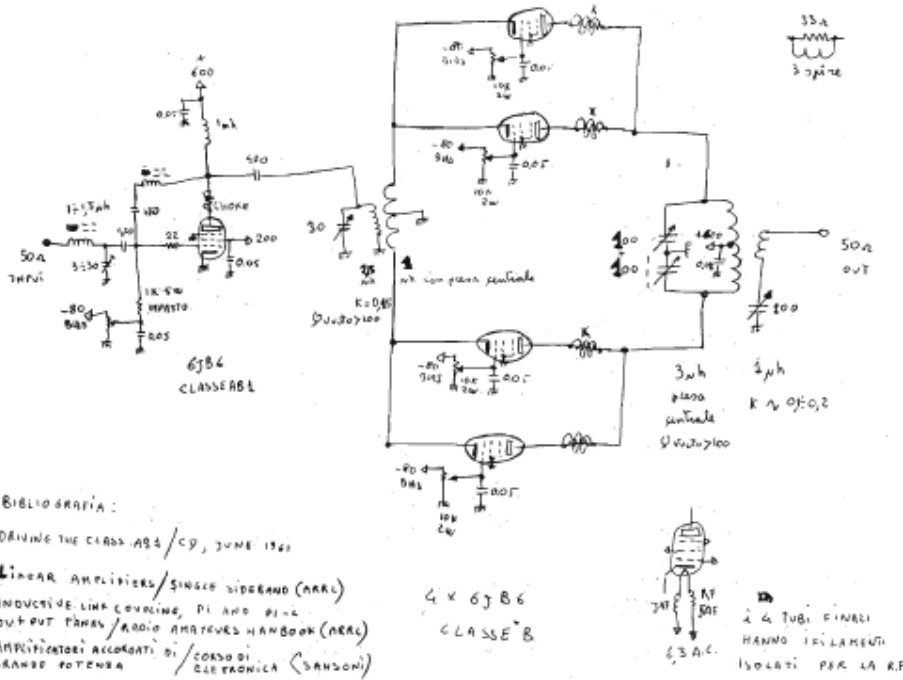 33Ω
3 spire
+
600
0,05
1mh
CHOKE
30
50Ω
INPUT
22
200
0.05
3÷30
1K 5W
IMPASTO
-80
BIAS
0.05
6JB6
CLASSE AB1
-80
BIAS
10K
2W
0.05
-80
BIAS
10K
2W
0,05
K
presa centrale
-80
BIAS
10K
2W
0.05
K
-80
BIAS
10K
2W
0.05
100
100
50Ω
OUT
100
3μh
presa
centrale
Q vuoto>100
1μh
BIBLIOGRAFIA:
DRIVING THE CLASS AB1/CQ, JUNE 1961
LINEAR AMPLIFIERS/SINGLE SIDEBAND (ARRL)
INDUCTIVE LINK COUPLING, PI AND PI-L
OUTPUT TANKS/RADIO AMATEURS HANBOOK (ARRL)
AMPLIFICATORI ACCORDATI DI
GRANDE POTENZA/CORSO DI
ELETTRONICA (SANSONI)
4 X 6JB6
CLASSE B
6,3 A.C.
i 4 TUBI FINALI
HANNO I FILAMENTI
ISOLATI PER LA R.F.